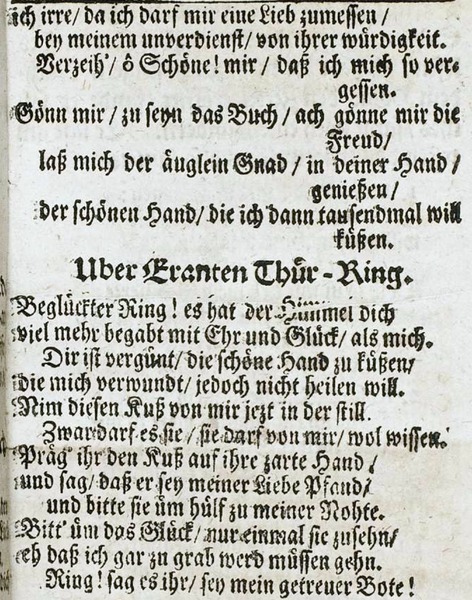 ich irre/ da ich darf mir eine Lieb zumessen/
bey meinem unverdienst/ von ihrer würdigkeit.
Verzeih'/ ô Schöne! mir/ daß ich mich so ver-
gessen.
Gönn mir/ zu seyn das Buch/ ach gönne mir die
Freud/
laß mich der äuglein Gnad/ in deiner Hand/
genießen/
der schönen Hand/ die ich dann tausendmal will
küßen.
Uber Eranten Thür-Ring.
Beglückter Ring! es hat der Himmel dich
viel mehr begabt mit Ehr und Glück/ als mich.
Dir ist vergünt/ die schöne Hand zu küßen/
die mich verwundt/ jedoch nicht heilen will.
Nim diesen Kuß von mir jezt in der still.
Zwar darf es sie/ sie darf von mir/ wol wissen.
Präg' ihr den Kuß auf ihre zarte Hand/
und sag/ daß er sey meiner Liebe Pfand/
und bitte sie üm hülf zu meiner Nohte.
Bitt' üm das Glück/ nur einmal sie zusehn/
eh daß ich gar zu grab werd müssen gehn.
Ring! sag es ihr/ sey mein getreuer Bote!